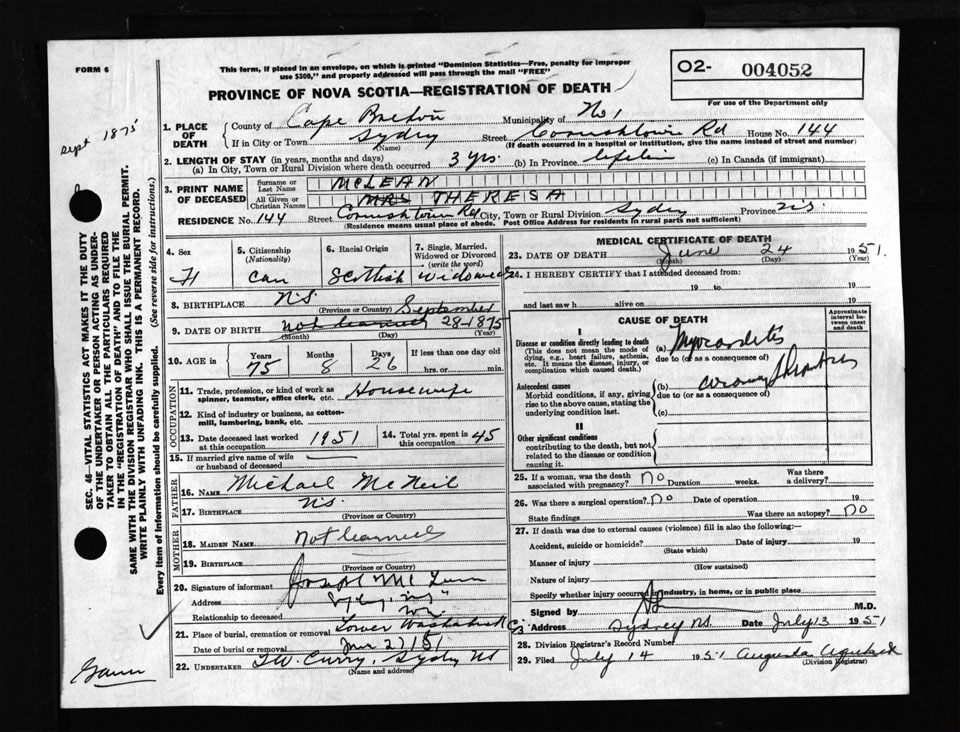 FORM 6
This form, if placed in an envelope, on which is printed "Dominion Statistics—Free, penalty for improper
use $300," and properly addressed will pass through the mail "FREE"
PROVINCE OF NOVA SCOTIA—REGISTRATION OF DEATH
O2- 004052
For use of the Department only
Sept 1875
1. PLACE OF DEATH
County of Cape Breton Municipality of No 1
If in City or Town Sydney (Name) Street Cornishtown Rd House No. 144
(If death occurred in a hospital or institution, give the name instead of street and number)
2. LENGTH OF STAY (in years, months and days)
(a) In City, Town or Rural Division where death occurred 3 yrs. (b) In Province lifetime (c) In Canada (if immigrant)
3. PRINT NAME OF DECEASED
Surname or Last Name McLEAN
All Given or Christian Names MRS THERESA
RESIDENCE No. 144 Street Cornishtown Rd City, Town or Rural Division Sydney Province N.S.
(Residence means usual place of abode. Post Office Address for residents in rural parts not sufficient)
4. Sex
F
5. Citizenship (Nationality)
Can
6. Racial Origin
Scottish
7. Single, Married, Widowed or Divorced (write the word)
widowed
8. BIRTHPLACE N.S.
(Province or Country)
9. DATE OF BIRTH not learned September 28-1875
(Month) (Day) (Year)
10. AGE in Years 75 Months 8 Days 26 If less than one day old
hrs. or min.
OCCUPATION
11. Trade, profession, or kind of work as spinner, teamster, office clerk, etc. Housewife
12. Kind of industry or business, as cotton-mill, lumbering, bank, etc.
13. Date deceased last worked at this occupation 1951
14. Total yrs. spent in this occupation 45
15. If married give name of wife or husband of deceased —
FATHER
16. NAME Michael McNeil
17. BIRTHPLACE N.S.
(Province or Country)
MOTHER
18. MAIDEN NAME Not learned
19. BIRTHPLACE
(Province or Country)
20. Signature of informant Joseph
Address
Relationship to deceased
21. Place of burial, cremation or removal Lower Washabuck C.B.
Date of burial or removal 27/51
22. UNDERTAKER T.W. Curry, Sydney NS
(Name and address)
MEDICAL CERTIFICATE OF DEATH
23. DATE OF DEATH June 24 1951.
(Month) (Day) (Year)
24. I HEREBY CERTIFY that I attended deceased from
19 to 19
and last saw h alive on 19
CAUSE OF DEATH
Approximate interval between onset and death
I
Disease or condition directly leading to death
(This does not mean the mode of dying, e.g., heart failure, asthenia, etc. It means the disease, injury, or complication which caused death.)
(a) Myocarditis
due to (or as a consequence of)
Antecedent causes
Morbid conditions, if any, giving rise to the above cause, stating the underlying condition last.
(b) Coronary Thrombosis
due to (or as a consequence of)
(c)
II
Other significant conditions
contributing to the death, but not related to the disease or condition causing it.
25. If a woman, was the death associated with pregnancy? no Duration weeks. Was there a delivery?
26. Was there a surgical operation? no Date of operation 19
State findings Was there an autopsy? no
27. If death was due to external causes (violence) fill in also the following:—
Accident, suicide or homicide? Date of injury 19
(State which)
Manner of injury
(How sustained)
Nature of injury
Specify whether injury occurred in industry, in home, or in public place
Signed by M.D.
Address Sydney NS. Date July 13 1951
28. Division Registrar's Record Number
29. Filed July 14 1951 Augusta
(Division Registrar)
SEC. 46—VITAL STATISTICS MAKES IT THE DUTY
OF THE UNDERTAKER OR PERSON ACTING AS UNDER-
TAKER TO OBTAIN ALL THE PARTICULARS REQUIRED
IN THE "REGISTRATION OF DEATH" AND TO FILE THE
SAME WITH THE DIVISION REGISTRAR WHO SHALL ISSUE THE BURIAL PERMIT.
WRITE PLAINLY WITH UNFADING INK. THIS IS A PERMANENT RECORD.
Every item of information should be carefully supplied. (See reverse side for instructions.)